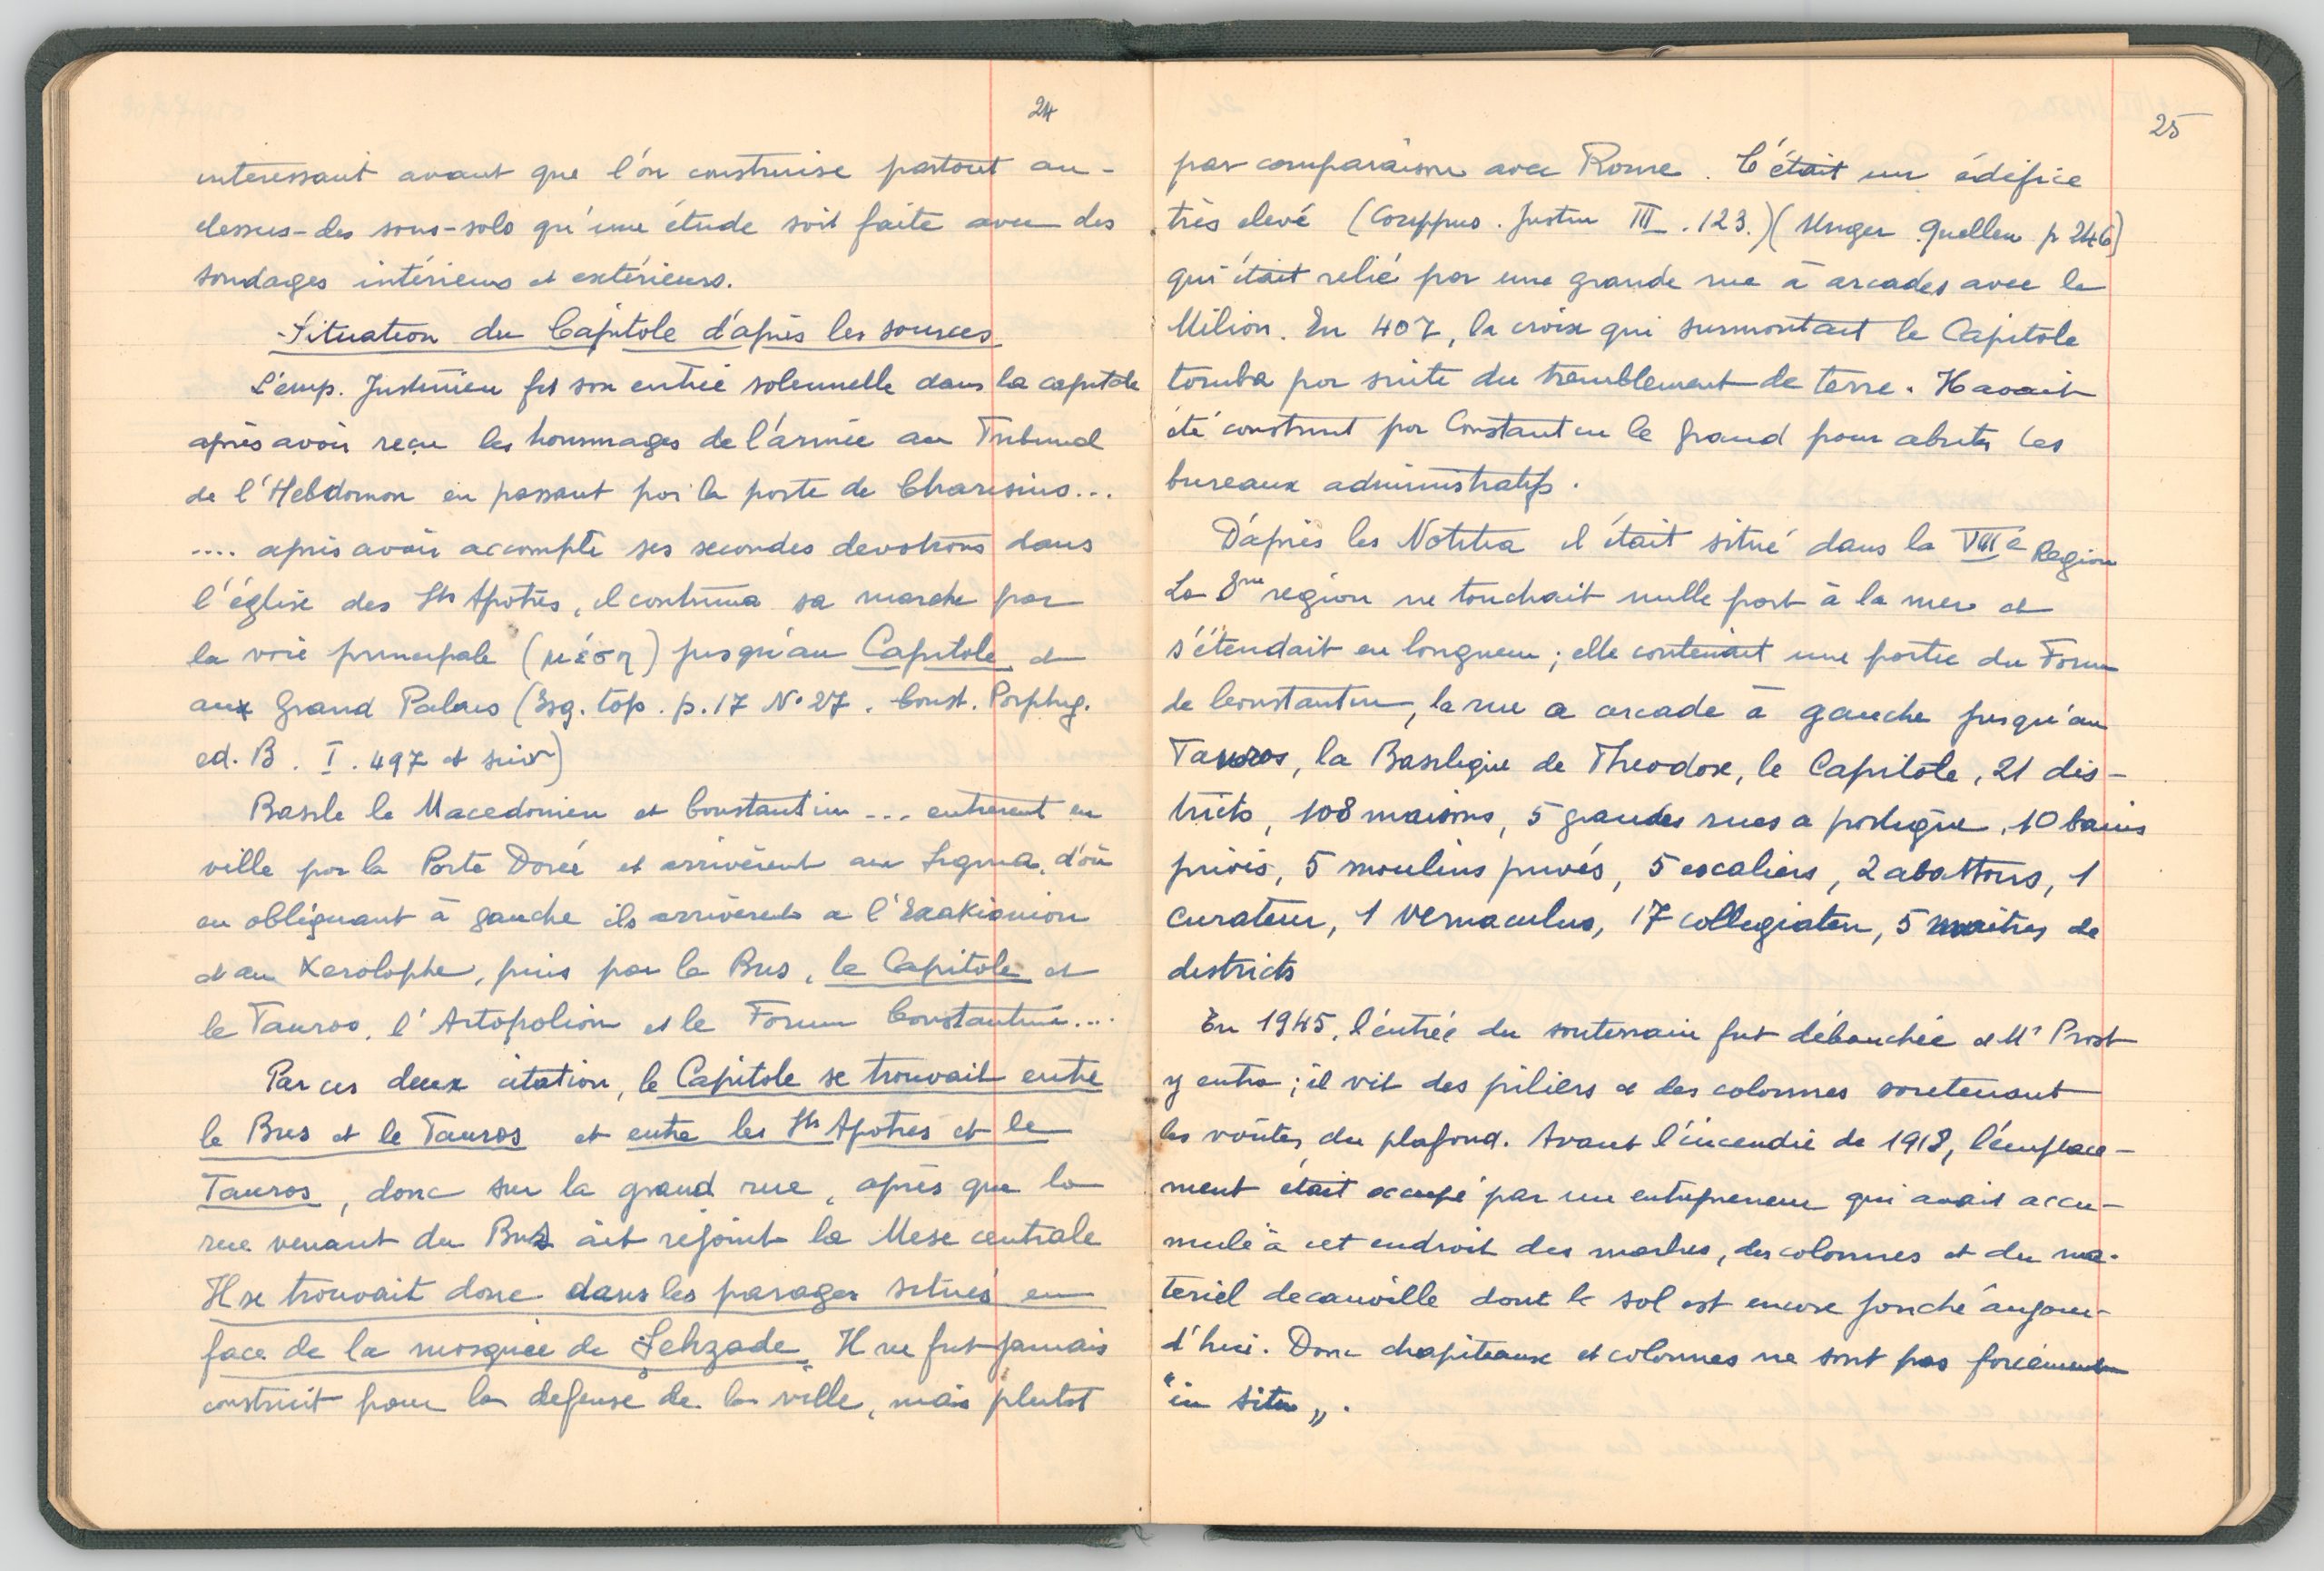 24
interessant avant que l'on construise partout au-
dessus-des sous-sols qu'une étude soit faite avec des
sondages intérieurs et extérieurs.
Situation du Capitole d'après les sources
L'emp. Justinien fit son entrée solennelle dans la capitale
après avoir reçu les hommages de l'armée au Tribunal
de l'Hebdomon en passant par la porte de Charisius...
.... après avoir accompli ses secondes devotions dans
l'église des Sts Apotres, il continua sa marche par
la voie principale (μέση) jusqu'au Capitole et
aux Grand Palais (Esq. top. p. 17 No 27. Const. Porphyg.
ed. B. I. 497 et suiv)
Basile le Macedonien et Constantin ... entrerent en
ville par la Porte Dorée et arrivèrent au Sigma, d'où
en obliquant à gauche ils arrivèrent a l'Exakionion
et au Xerolophe, puis par le Bus, le Capitole et
le Tauros, l'Artopolion et le Forum Constantin....
Par ces deux citation, le Capitole se trouvait entre
le Bus et le Tauros et entre les Sts Apotres et le
Tauros, donc sur la grand rue, après que la
rue venant du Bus ait rejoint la Mese centrale
Il se trouvait donc dans les parages situés en
face de la mosquée de Şehzade. Il ne fut jamais
construit pour la defense de la ville, mais plutot
25
par comparaison avec Rome. C'était un édifice
très elevé (Corippus. Justin III. 123.) (Unger Quellen p 246)
qui était relié par une grande rue à arcades avec le
Milion. En 407, la croix qui surmontait le Capitole
tomba par suite du tremblement de terre. Il avait
été construit par Constantin le Grand pour abriter les
bureaux administratifs.
D'après les Notitia il était situé dans la VIIIe Region
La 8me region ne touchait nulle part à la mer et
s'étendait en longueur; elle contenait une partie du Forum
de Constantin, la rue a arcade à gauche jusqu'au
Tauros, la Basilique de Theodose, le Capitole, 21 dis-
tricts, 108 maisons, 5 grandes rues a portique, 10 bains
privés, 5 moulins privés, 5 escaliers, 2 abattoirs, 1
curateur, 1 vernaculus, 17 collegiaten, 5 maitres de
districts
En 1945, l'entrée du souterrain fut débouchée et Mr Prost
y entra; il vit des piliers et des colonnes soutenant
les voûtes du plafond. Avant l'incendie de 1918, l'emplace-
ment était occupé par un entrepreneur qui avait accu-
mulé à cet endroit des marbres, des colonnes et du ma-
teriel decauville dont le sol est encore jonché aujour-
d'hui. Donc chapiteaux et colonnes ne sont pas forcément
"in situ".